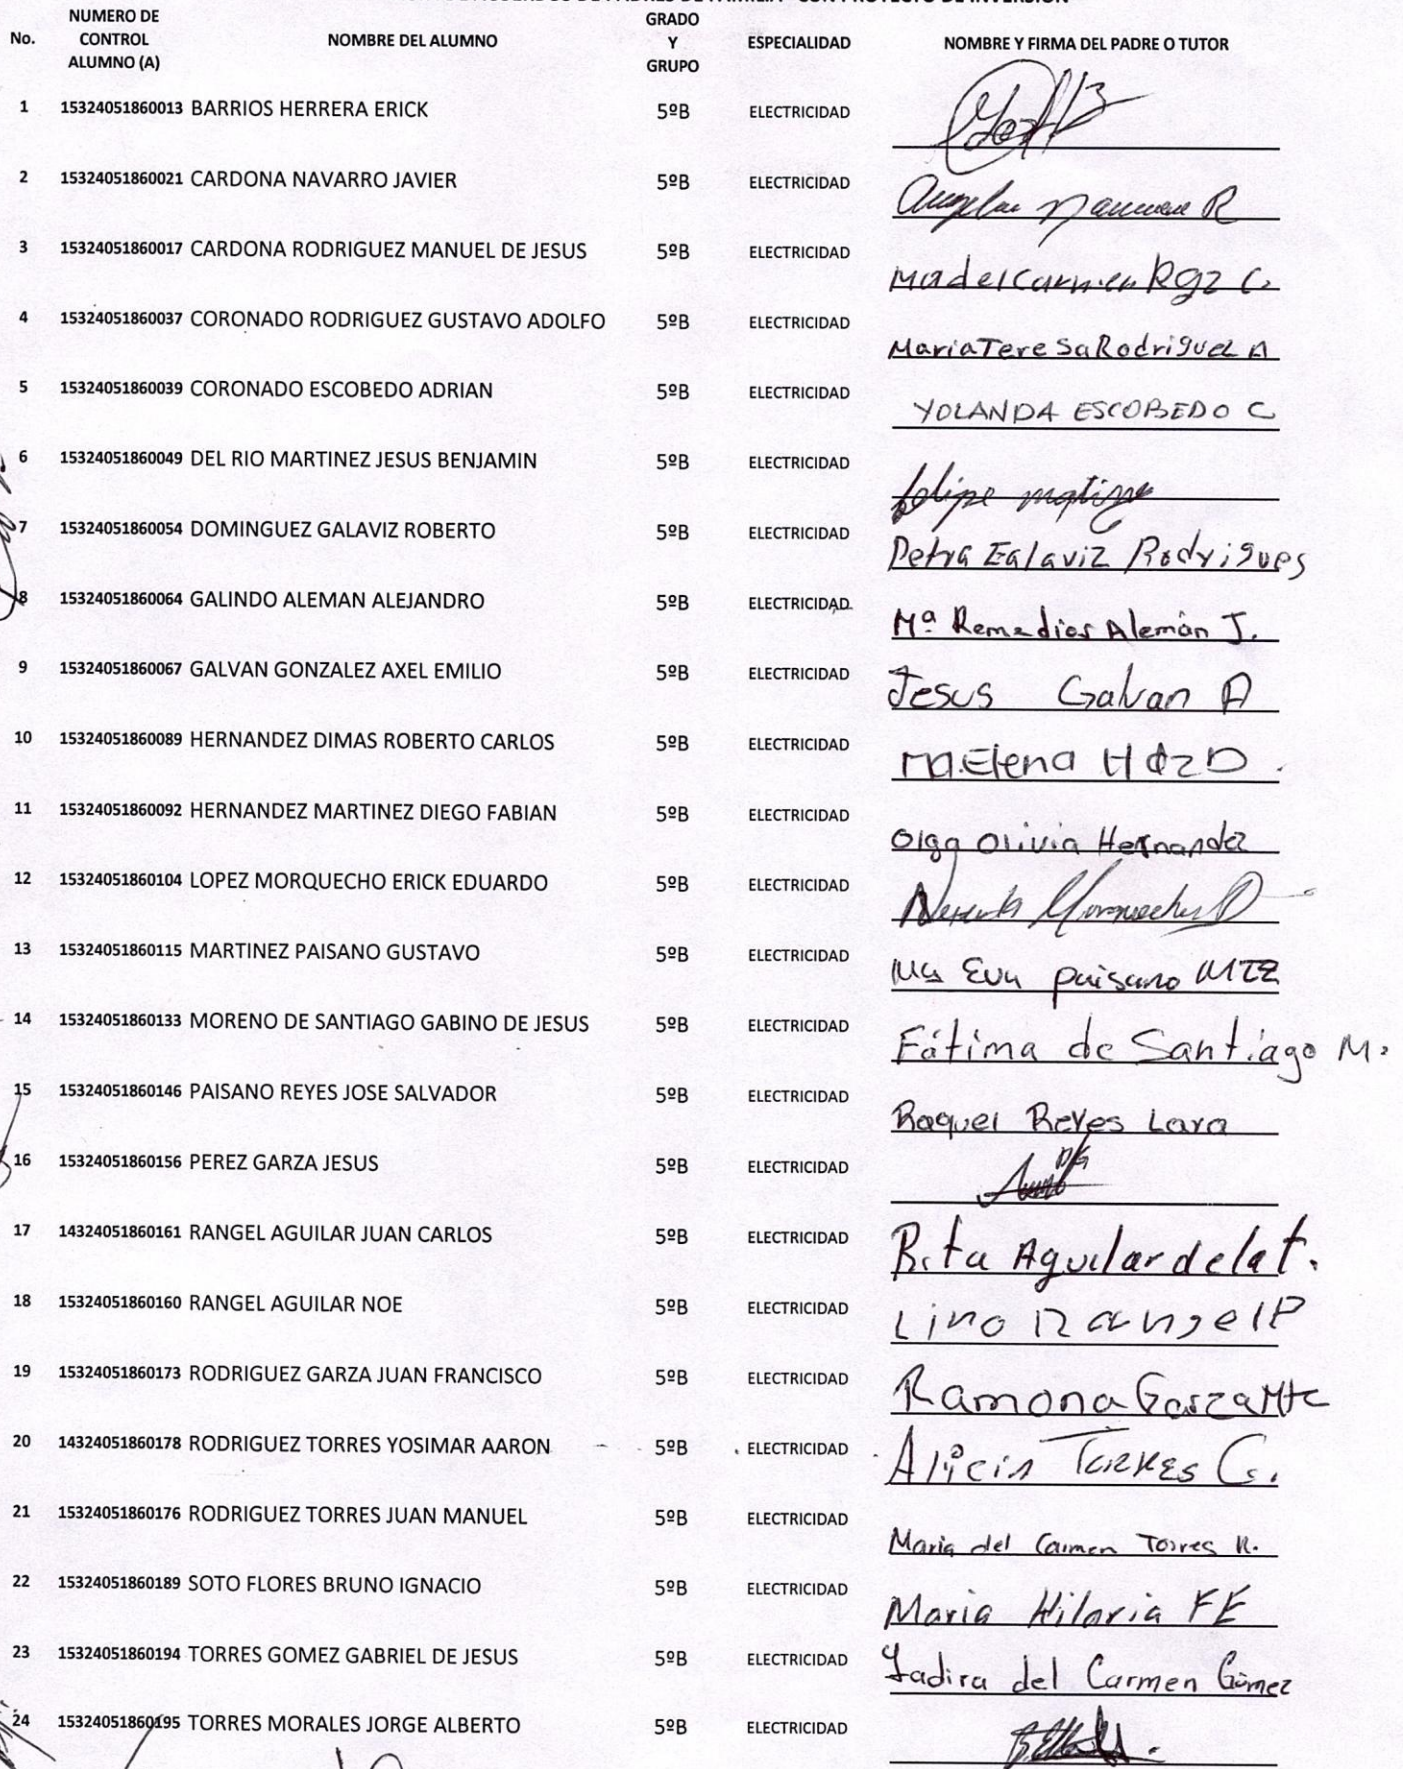 No.
NUMERO DE
CONTROL
ALUMNO (A)
NOMBRE DEL ALUMNO
GRADO
Y
GRUPO
ESPECIALIDAD
NOMBRE Y FIRMA DEL PADRE O TUTOR
1 15324051860013 BARRIOS HERRERA ERICK 5ºB ELECTRICIDAD
2 15324051860021 CARDONA NAVARRO JAVIER 5ºB ELECTRICIDAD
3 15324051860017 CARDONA RODRIGUEZ MANUEL DE JESUS 5ºB ELECTRICIDAD Ma del Carmen Rgz C.
4 15324051860037 CORONADO RODRIGUEZ GUSTAVO ADOLFO 5ºB ELECTRICIDAD Maria Teresa Rodriguez A
5 15324051860039 CORONADO ESCOBEDO ADRIAN 5ºB ELECTRICIDAD YOLANDA ESCOBEDO C
6 15324051860049 DEL RIO MARTINEZ JESUS BENJAMIN 5ºB ELECTRICIDAD felipe
7 15324051860054 DOMINGUEZ GALAVIZ ROBERTO 5ºB ELECTRICIDAD Petra Galaviz Rodrigues
8 15324051860064 GALINDO ALEMAN ALEJANDRO 5ºB ELECTRICIDAD Mª Remedios Alemán J.
9 15324051860067 GALVAN GONZALEZ AXEL EMILIO 5ºB ELECTRICIDAD Jesus Galvan A
10 15324051860089 HERNANDEZ DIMAS ROBERTO CARLOS 5ºB ELECTRICIDAD Ma. Elena Hdz D.
11 15324051860092 HERNANDEZ MARTINEZ DIEGO FABIAN 5ºB ELECTRICIDAD Olga Olivia Hernandez
12 15324051860104 LOPEZ MORQUECHO ERICK EDUARDO 5ºB ELECTRICIDAD
13 15324051860115 MARTINEZ PAISANO GUSTAVO 5ºB ELECTRICIDAD Ma Eva paisano MTZ
14 15324051860133 MORENO DE SANTIAGO GABINO DE JESUS 5ºB ELECTRICIDAD Fátima de Santiago M.
15 15324051860146 PAISANO REYES JOSE SALVADOR 5ºB ELECTRICIDAD Raquel Reyes Lara
16 15324051860156 PEREZ GARZA JESUS 5ºB ELECTRICIDAD
17 14324051860161 RANGEL AGUILAR JUAN CARLOS 5ºB ELECTRICIDAD Rita Aguilar de la t.
18 15324051860160 RANGEL AGUILAR NOE 5ºB ELECTRICIDAD Lino Rangel P
19 15324051860173 RODRIGUEZ GARZA JUAN FRANCISCO 5ºB ELECTRICIDAD Ramona Garza Mtz
20 14324051860178 RODRIGUEZ TORRES YOSIMAR AARON 5ºB ELECTRICIDAD Alicia Torres G.
21 15324051860176 RODRIGUEZ TORRES JUAN MANUEL 5ºB ELECTRICIDAD Maria del Carmen Torres R.
22 15324051860189 SOTO FLORES BRUNO IGNACIO 5ºB ELECTRICIDAD Maria Hilaria F E
23 15324051860194 TORRES GOMEZ GABRIEL DE JESUS 5ºB ELECTRICIDAD Yadira del Carmen Gómez
24 15324051860195 TORRES MORALES JORGE ALBERTO 5ºB ELECTRICIDAD